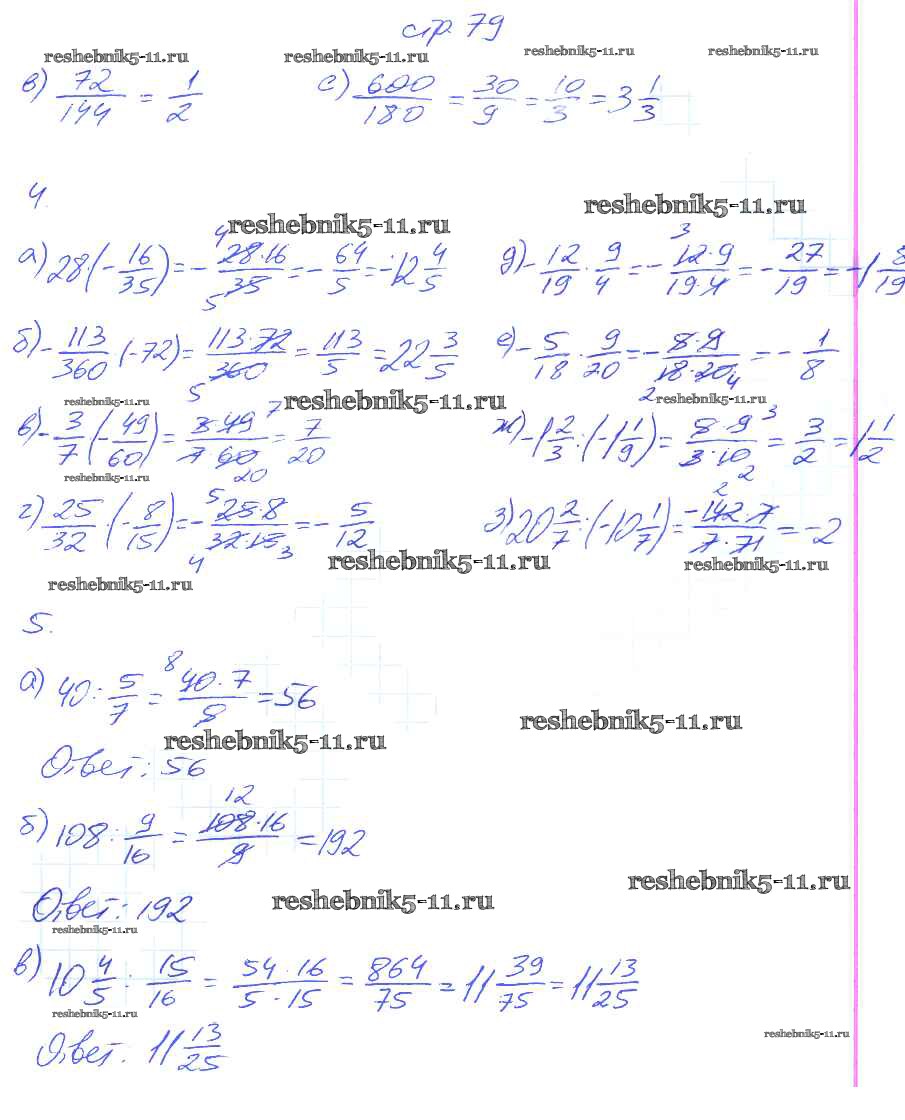 стр. 79
reshebnik5-11.ru reshebnik5-11.ru reshebnik5-11.ru reshebnik5-11.ru
в) 72/144 = 1/2 с) 600/180 = 30/9 = 10/3 = 3 1/3
4.
reshebnik5-11.ru reshebnik5-11.ru
а) 28·(-16/35) = -28·16/35 = -64/5 = -12 4/5 д) -12/19 · 9/4 = -12·9/19·4 = -27/19 = -1 8/19
б) -113/360 (-72) = 113·72/360 = 113/5 = 22 3/5 е) -5/18 · 9/20 = -5·9/18·20 = -1/8
reshebnik5-11.ru reshebnik5-11.ru reshebnik5-11.ru
в) -3/7 (-49/60) = 3·49/7 60 = 7/20 ж) -1 2/3 : (-1 1/9) = 5·9/3·10 = 3/2 = 1 1/2
reshebnik5-11.ru
г) 25/32 · (-8/15) = -25·8/32·15 = -5/12 з) 20 2/7 : (-10 1/7) = -142·7/7·71 = -2
reshebnik5-11.ru reshebnik5-11.ru reshebnik5-11.ru
5.
а) 40 : 5/7 = 40·7/5 = 56
reshebnik5-11.ru reshebnik5-11.ru
Ответ: 56
б) 108 : 9/16 = 108·16/9 = 192
reshebnik5-11.ru reshebnik5-11.ru
Ответ: 192
reshebnik5-11.ru
в) 10 4/5 : 15/16 = 54·16/5·15 = 864/75 = 11 39/75 = 11 13/25
reshebnik5-11.ru reshebnik5-11.ru
Ответ. 11 13/25